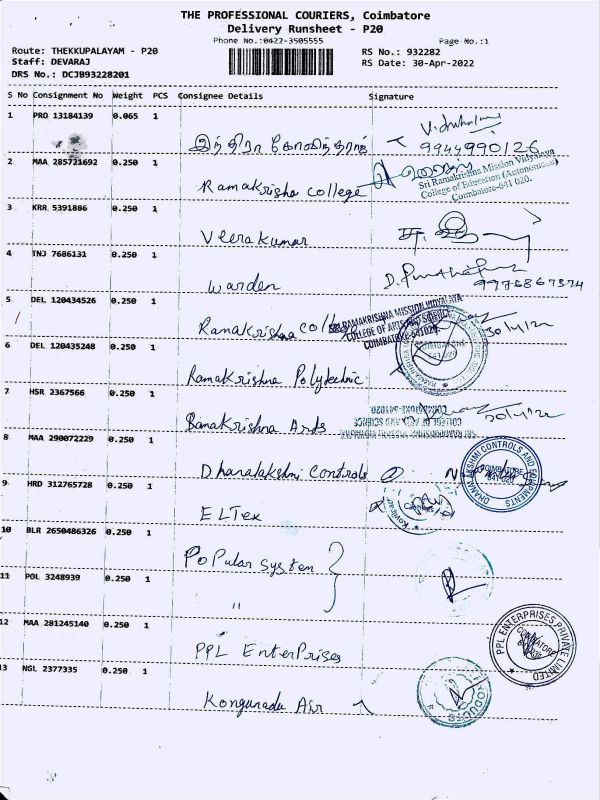 THE PROFESSIONAL COURIERS, Coimbatore
Delivery Runsheet - P20
Phone No.:0422-3505555
Page No.:1
Route: THEKKUPALAYAM - P20
RS No.: 932282
Staff: DEVARAJ
RS Date: 30-Apr-2022
DRS No.: DCJB93228201
S No Consignment No Weight PCS Consignee Details Signature
1 PRO 13184139 0.065 1
9944990126
2 MAA 285721692 0.250 1
Ramakrisha college
Sri Ramakrishna Mission Vidyalaya
College of Education (Autonomous)
Coimbatore-641 020.
3 KRR 5391886 0.250 1
Veerakumar
4 TNJ 7686131 0.250 1
Warden
5 DEL 120434526 0.250 1
Ramakrishna college
SRI RAMAKRISHNA MISSION VIDYALAYA
COLLEGE OF ARTS AND SCIENCE
COIMBATORE-641020
30/4/22
6 DEL 120435248 0.250 1
Ramakrishna Polytechnic
7 HSR 2367566 0.250 1
Ramakrishna Arts
COLLEGE OF ARTS AND SCIENCE
COIMBATORE-641020
30/4/22
8 MAA 290072229 0.250 1
Dhanalakshmi Controls
DHANALAKSHMI CONTROLS AND EQUIPMENTS
9 HRD 312765728 0.250 1
ELTex
10 BLR 2650486326 0.250 1
PoPular System
11 POL 3248939 0.250 1
"
12 MAA 281245140 0.250 1
PPL EnterPrises
PPL ENTERPRISES PRIVATE LIMITED
13 NGL 2377335 0.250 1
Kongunadu Air